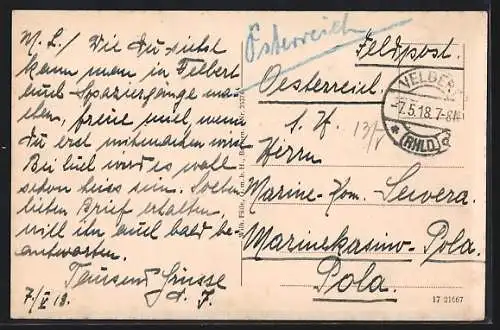 M. L.! Wie Du siehst
kann man in Velbert
auch Spaziergänge ma-
chen, freue mich, wenn
Du erst mitmachen wirst
Bei Euch wird es wohl
schon heiss sein. Soeben
lieben Brief erhalten,
will ihn auch bald be-
antworten.
Tausend Grüsse
d. F.
7/V 18.
Österreich
Feldpost.
Oesterreich
Herrn
Marine-Kom. Severa.
Marinekasino-Pola.
Pola.
VELBERT
-7.5.18.7-8
(RHLD.)
17 21667